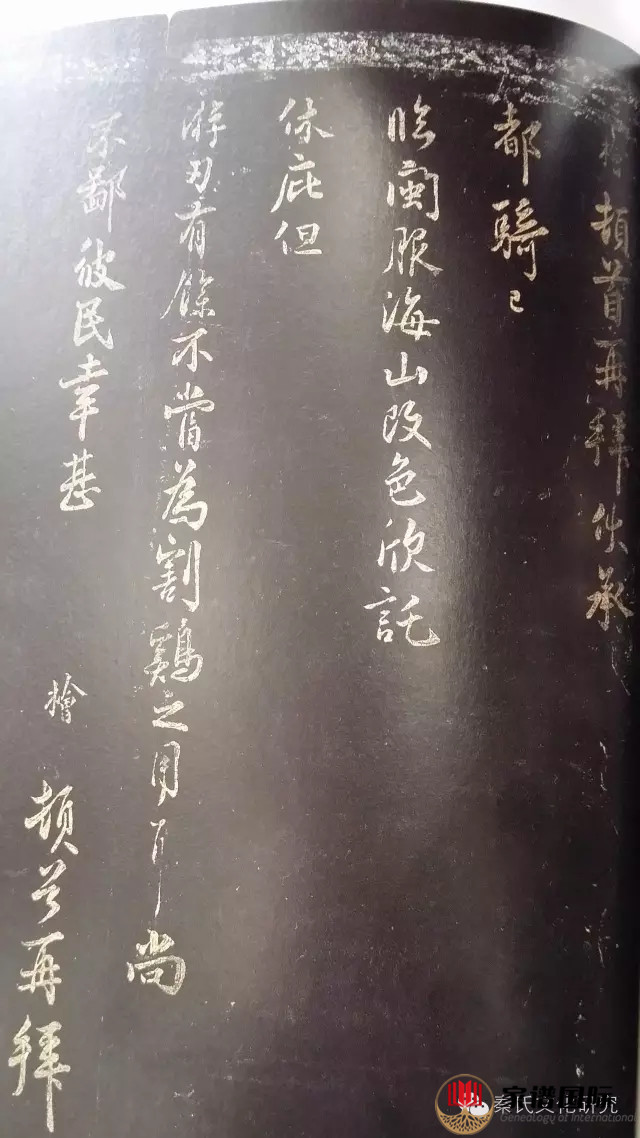 檜頓首再拜伏承
都騎已
臨閩服海山改色欣託
休庇但
游刃有餘不當為割鷄之用耳尚
不鄙彼民幸甚
檜頓首再拜
秦氏文化研究
家谱国际
Genealogy of International